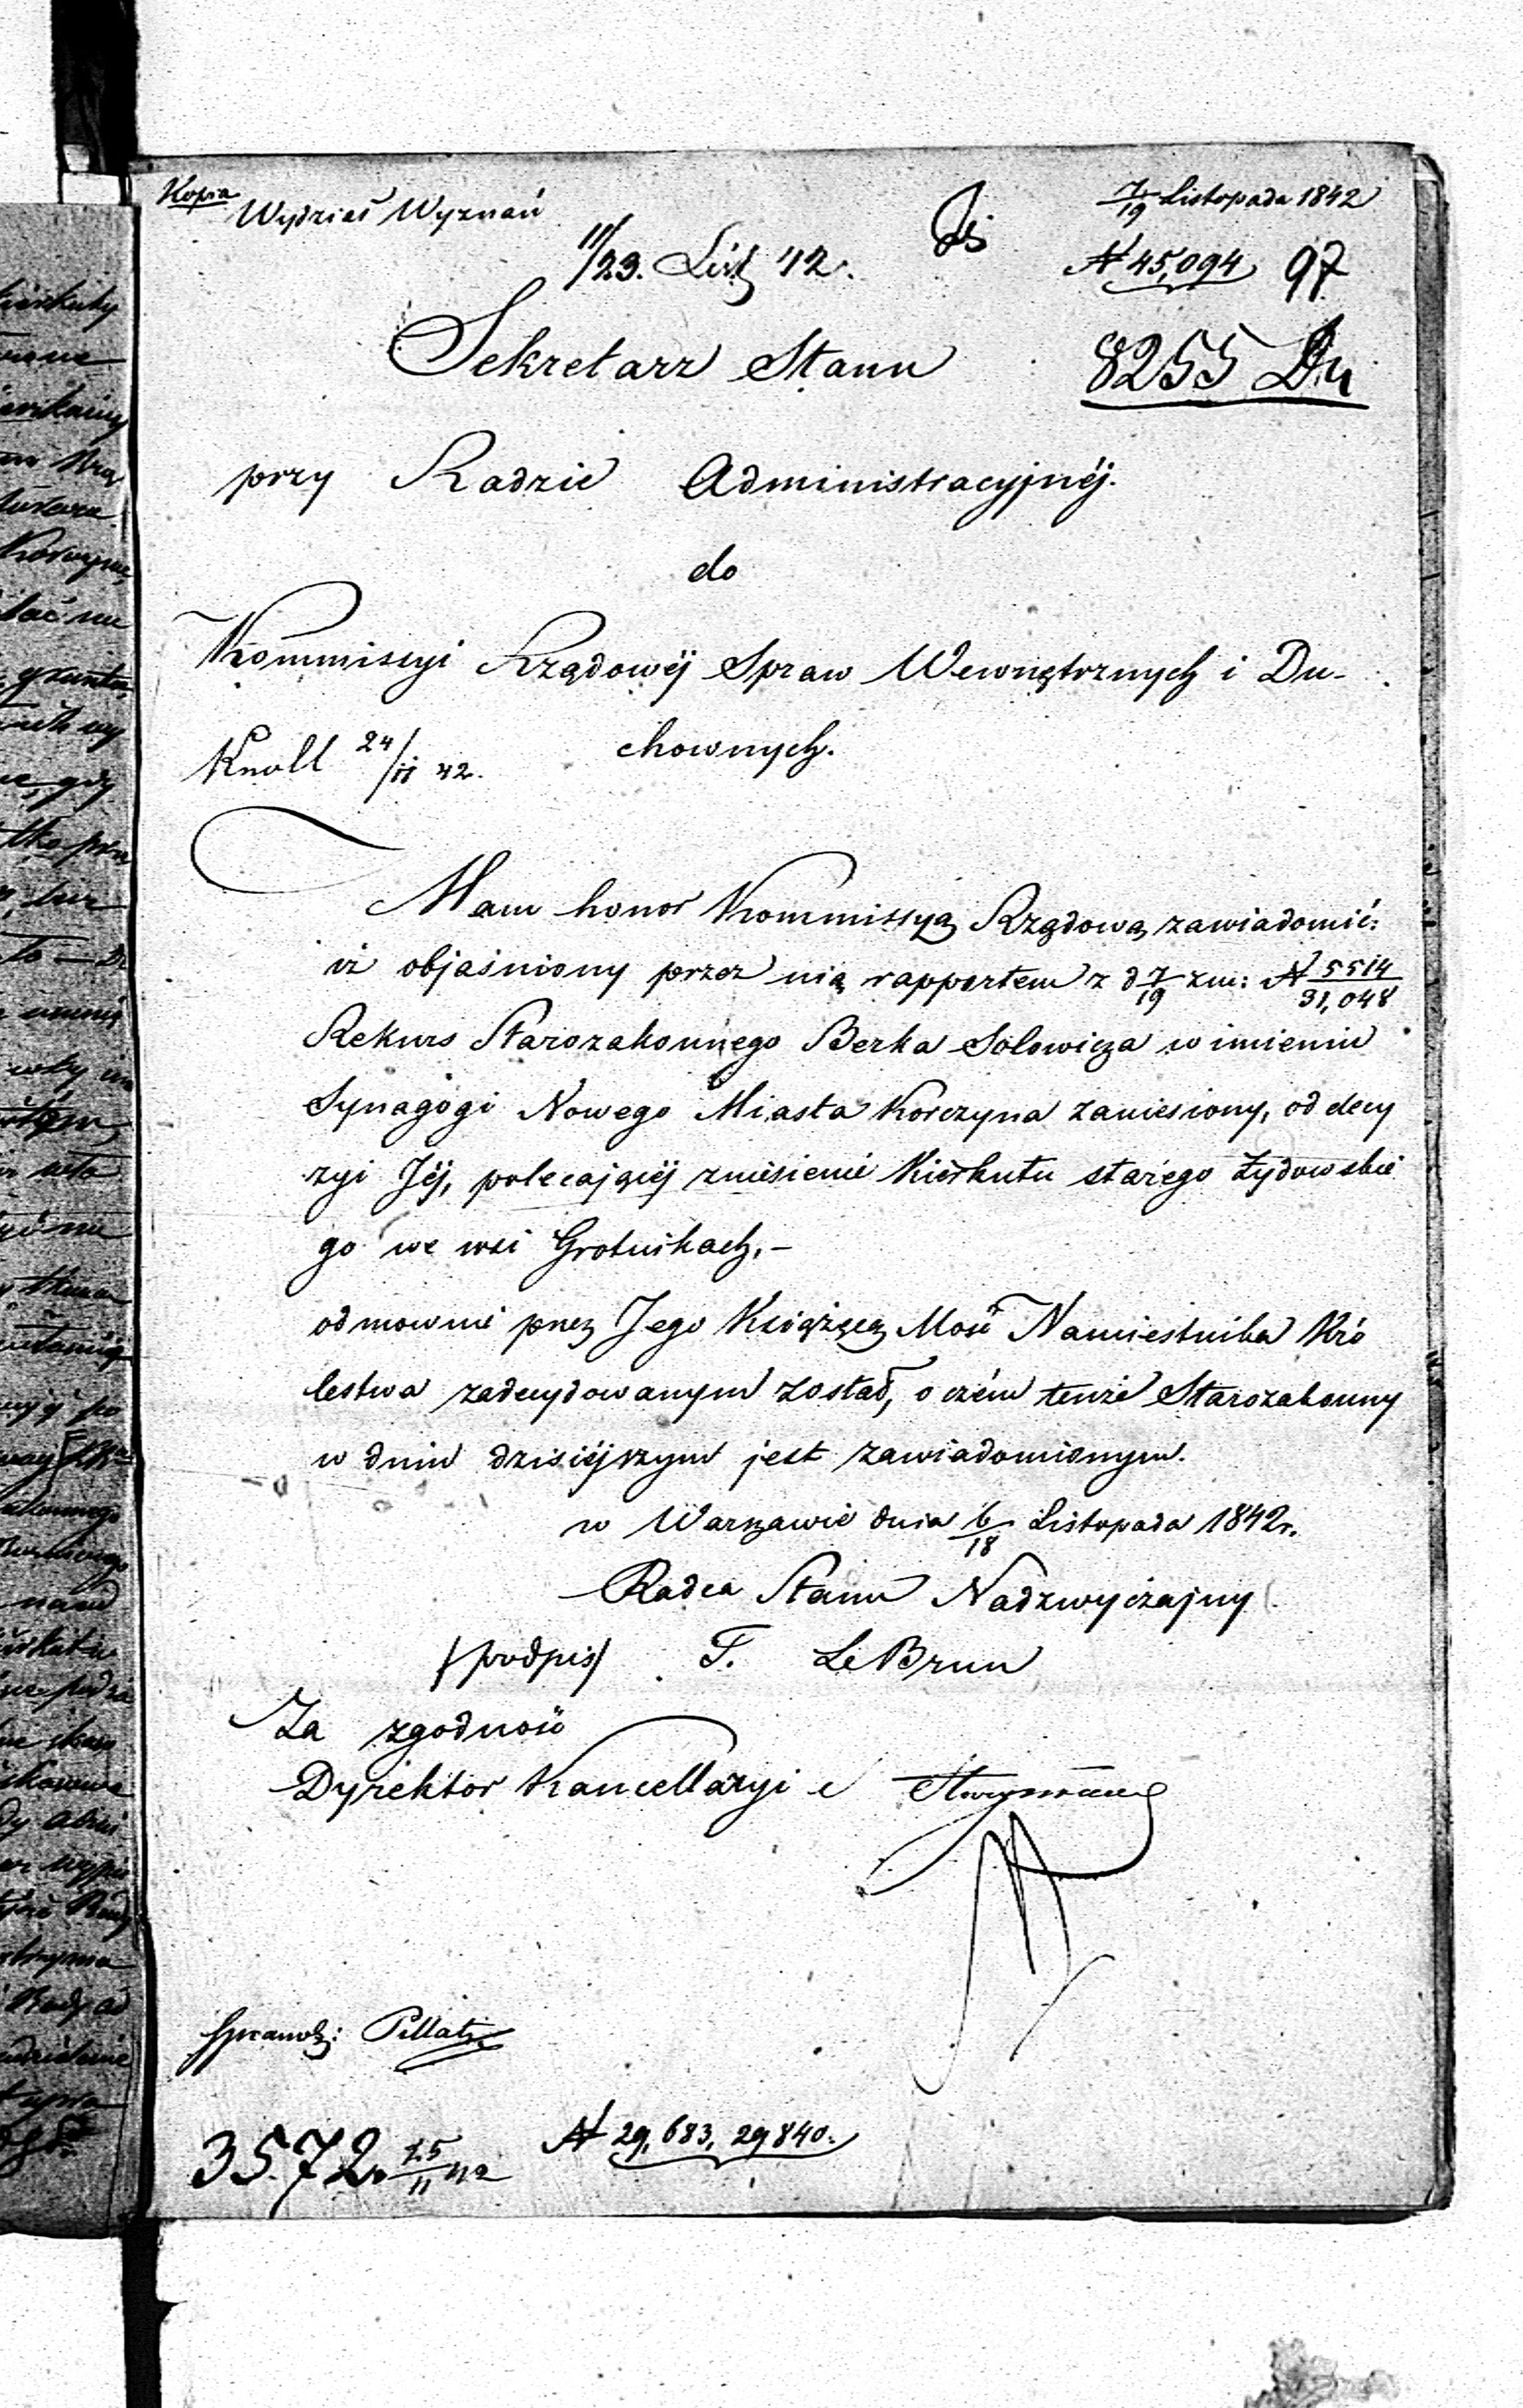 Kopia
Wydział Wyznań
7/19 Listopada 1842
11/23. List 42.
№ 45,094 97
Sekretarz Stanu
8255 Du
przy Radzie Administracyjnéj.
do
Kommissyi Rządowéj Spraw Wewnętrznych i Du-
chownych.
Knoll 24/11 42.
Mam honor Kommissyą Rządową zawiadomić:
iż objaśniony przez nią rapportem z d 7/19 zm: № 5514/31,048
Rekurs Starozakonnego Berka Solowicza w imieniu
Synagogi Nowego Miasta Korczyna zaniesiony, od decy
zyi Jéj, polecającéj zniesienie Kierkutu starego żydowskie
go we wsi Grotnikach, -
odmownie przez Jego Książęcą Mość Namiestnika Kró
lestwa zadecydowanym został, o czém tenże Starozakonny
w dniu dzisiéjszym jest zawiadomionym.
w Warszawie dnia 6/18 Listopada 1842r.
Radca Stanu Nadzwyczajny
/podpis/ F. LeBrun
Za zgodność
Dyrektor Kancellaryi
Sprawdz: Pillati
3572. 25/11 42
№ 29,683, 29840.